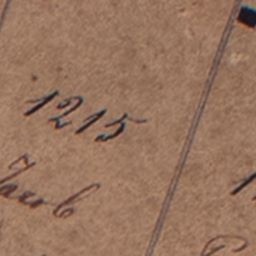 1215
Jacob